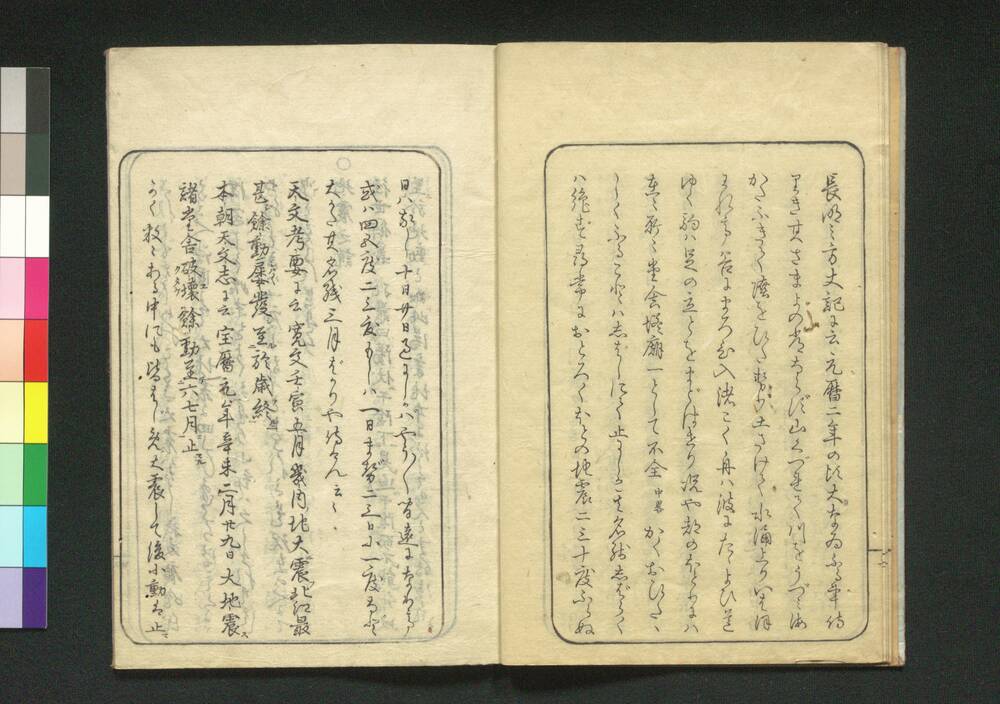 長明之方丈記に云元暦二年の頃大なゐふる事侍
りき其さまよの常ならず山くづれて川をうづみ海
かたふきて陸をひたせり土さけて水涌上りいはほ
われて谷にまろひ入渚こぐ舟は波にたゝよひ道
ゆく駒は足の立とをまどはせり況や都のほとりには
在々所々堂舎塔廟一として不全 中略 かくおひたゝ
しくふることはしばしにて止にしか共名残しばらく
は絶ず尋常におとろくほとの地震二三十度ふらぬ
日はなし十日廿日過にしかばやう〳〵間遠になりて
或ハ四五度二三度もしハ一日ませ二三日に一度など
大かた其名残三月ばかりや侍けん云々
天文考要に云寛文壬寅五月畿内地大震北江最
甚餘動屡発至於歳終
本朝天文志に云宝暦元年辛未二月廿九日大地震
諸堂舎破壊餘動至六七月止
かく数々ある中にも皆はじめ大震して後小動は止